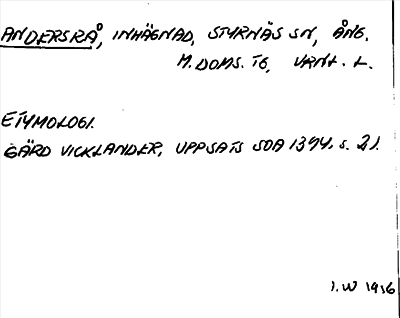 ANDERSRÅ, INHÄGNAD, STYRNÄS SN, ÅNG.
M. DOMS. TG, VRNL. L.
ETYMOLOGI.
GÄRD VICKLANDER, UPPSATS SOA 1394. S. 21.
I.W 1916